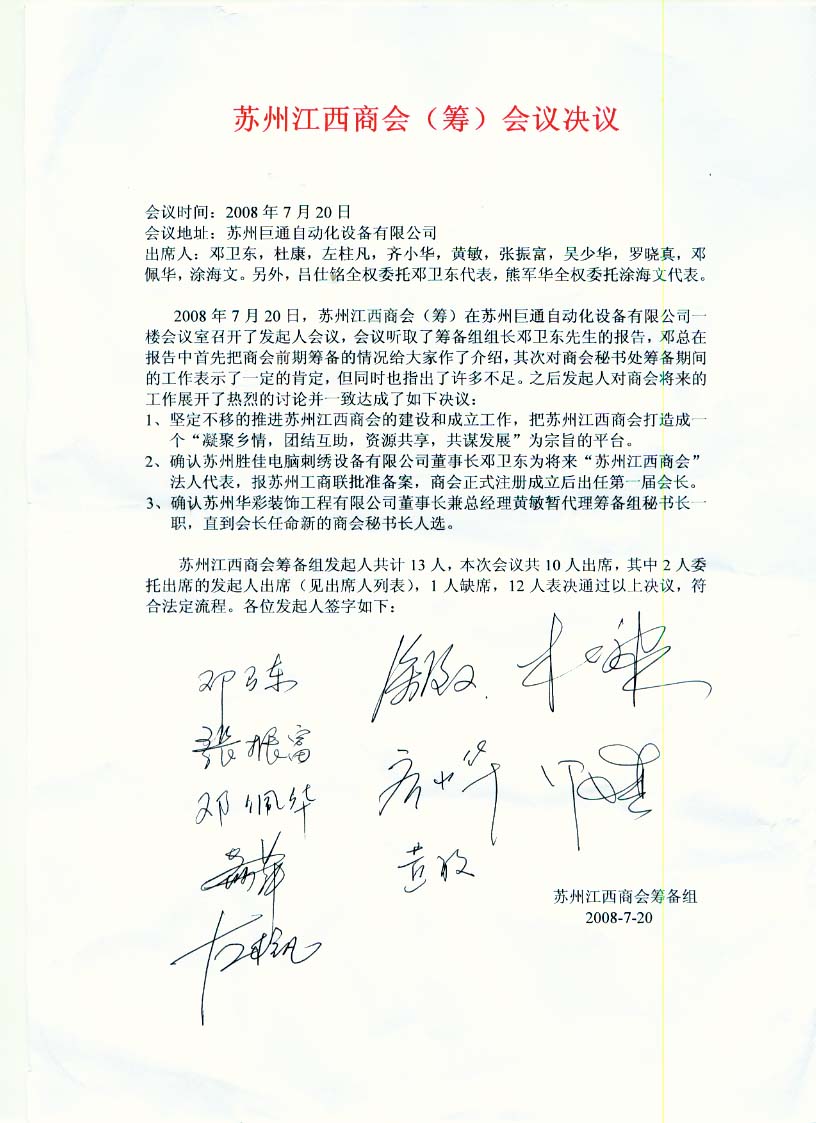 苏州江西商会（筹）会议决议
会议时间：2008年7月20日
会议地址：苏州巨通自动化设备有限公司
出席人：邓卫东，杜康，左柱凡，齐小华，黄敏，张振富，吴少华，罗晓真，邓
佩华，涂海文。另外，吕仕铭全权委托邓卫东代表，熊军华全权委托涂海文代表。
2008年7月20日，苏州江西商会（筹）在苏州巨通自动化设备有限公司一
楼会议室召开了发起人会议，会议听取了筹备组组长邓卫东先生的报告，邓总在
报告中首先把商会前期筹备的情况给大家作了介绍，其次对商会秘书处筹备期间
的工作表示了一定的肯定，但同时也指出了许多不足。之后发起人对商会将来的
工作展开了热烈的讨论并一致达成了如下决议：
1、坚定不移的推进苏州江西商会的建设和成立工作，把苏州江西商会打造成一
个“凝聚乡情，团结互助，资源共享，共谋发展”为宗旨的平台。
2、确认苏州胜佳电脑刺绣设备有限公司董事长邓卫东为将来“苏州江西商会”
法人代表，报苏州工商联批准备案，商会正式注册成立后出任第一届会长。
3、确认苏州华彩装饰工程有限公司董事长兼总经理黄敏暂代理筹备组秘书长一
职，直到会长任命新的商会秘书长人选。
苏州江西商会筹备组发起人共计13人，本次会议共10人出席，其中2人委
托出席的发起人出席（见出席人列表），1人缺席，12人表决通过以上决议，符
合法定流程。各位发起人签字如下：
邓卫东
张振富
邓佩华
齐小华
黄敏
左柱凡
苏州江西商会筹备组
2008-7-20